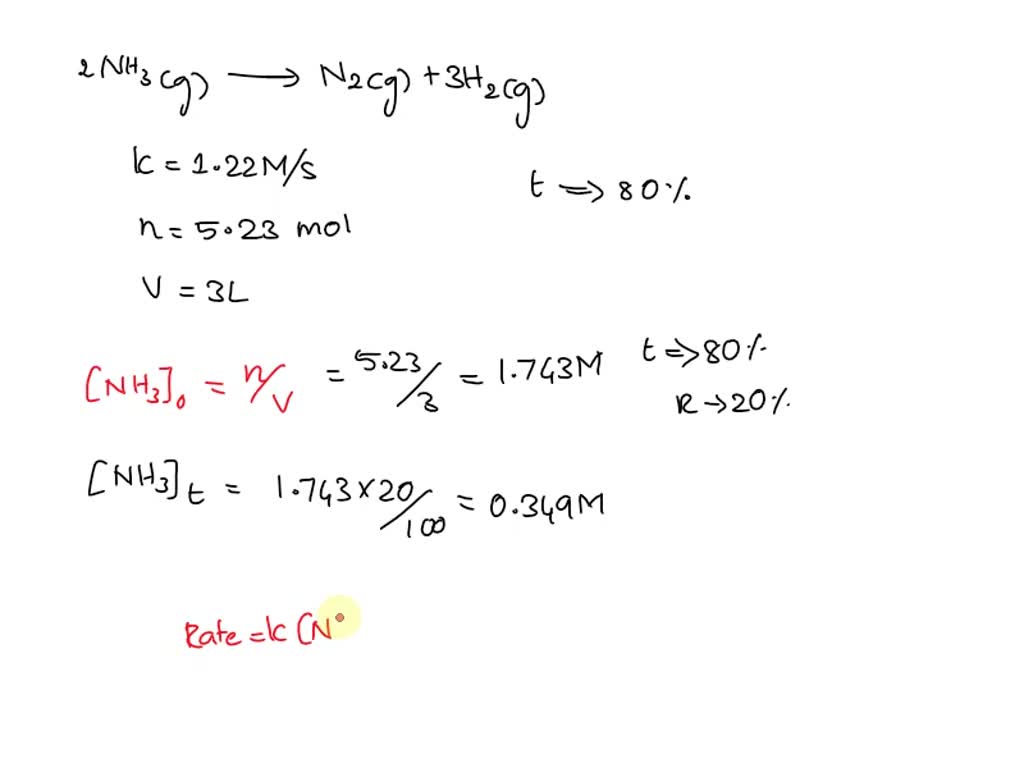 2NH₃(g) ⟶ N₂(g) + 3H₂(g)
k = 1.22M/s
t ⇒ 80%
n = 5.23 mol
V = 3L
[NH₃]₀ = n/V = 5.23/3 = 1.743M
t ⇒ 80%
R → 20%
[NH₃]t = 1.743 × 20/100 = 0.349M
Rate = k (N